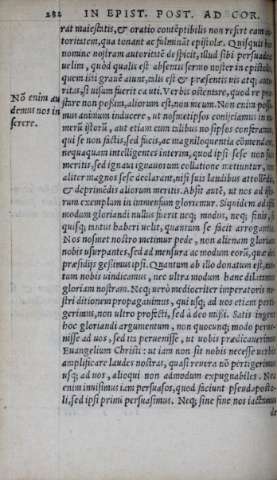 282 IN EPIST. POST. AD COR.
rat maiestatis, & oratio contẽptibilis non resert eam au
toritatem, qua tonant ac fulminãt epistolæ. Quisquis hoc
nomine nostram autoritatẽ despicit, illud sibi persuadeat
uelim, quòd qualis est absentis sermo noster in epistolis,
quem isti grauẽ aiunt, talis est & præsentis uis atq; auto
ritas, si usum fuerit ea uti. Verbis ostentare, quod re præ
stare non possim, aliorum est, non meum. Non enim possu
mus animum inducere, ut nosmetipsos conijciamus in nu
merũ istorũ, aut etiam cum talibus nos ipsos conferamus,
qui se non factis, sed fucis, ac magniloquentia cõmendant,
nequaquam intelligentes interim, quod ipsi sese non suis
meritis, sed ignaui ignauorum collatione metiuntur, nec
aliter magnos sese declarant, nisi suis laudibus attollẽdis,
& deprimẽdis aliorum meritis. Absit autẽ, ut nos ad isto
rum exemplum in immensum gloriemur. Siquidem ad istũ
modum gloriandi nullus fuerit neq; modus, neq; finis, si
quisq; tantus haberi uelit, quantum se facit arrogantia.
Nos nosmet nostro metimur pede, non alienam gloriam
nobis usurpantes, sed ad mensurã ac modum eorũ, quæ dei
præsidijs gessimus ipsi. Quantum ab illo donatum est, tan
tum nobis uindicamus, nec ultra modum hanc dilatamus
gloriam nostram. Neq; uerò mediocriter imperatoris no
stri ditionem propagauimus, qui usq; ad uos etiam perti
gerimus, non ultro profecti, sed à deo missi. Satis ingens
hoc gloriandi argumentum, non quocunq; modo perue
nisse ad uos, sed ita peruenisse, ut uobis prædicauerimus
Euangelium Christi: ut iam non sit nobis necesse uerbis
amplificare laudes nostras, quasi reuera nõ pertigerimus
usq; ad uos, alioqui non admodum expugnabiles. Nec
enim inuisimus iam persuasos, quod faciunt pseudapostو
li, sed ipsi primi persuasimus. Neq; sine fine nos iactamus
de
Nõ enim au
demus nos in
serere.